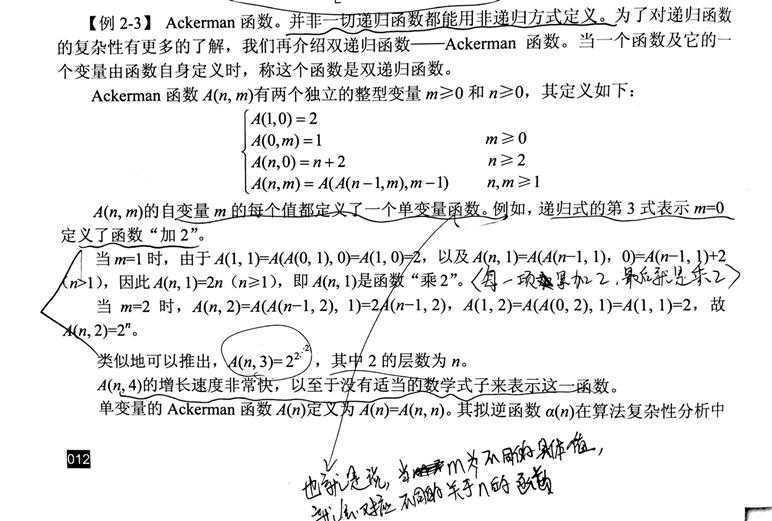 【例 2-3】 Ackerman 函数。并非一切递归函数都能用非递归方式定义。为了对递归函数
的复杂性有更多的了解，我们再介绍双递归函数——Ackerman 函数。当一个函数及它的一
个变量由函数自身定义时，称这个函数是双递归函数。
Ackerman 函数 A(n, m)有两个独立的整型变量 m≥0 和 n≥0，其定义如下：
A(1,0) = 2
A(0,m) = 1 m≥0
A(n,0) = n+2 n≥2
A(n,m) = A(A(n−1,m),m−1) n,m≥1
A(n, m)的自变量 m 的每个值都定义了一个单变量函数。例如，递归式的第 3 式表示 m=0
定义了函数“加 2”。
当 m=1 时，由于 A(1, 1)=A(A(0, 1), 0)=A(1, 0)=2，以及 A(n, 1)=A(A(n−1, 1)，0)=A(n−1, 1)+2
(n>1)，因此 A(n, 1)=2n (n≥1)，即 A(n, 1)是函数“乘 2”。（每一项累加2，最后就是乘2）
当 m=2 时，A(n, 2)=A(A(n−1, 2), 1)=2A(n−1, 2)，A(1, 2)=A(A(0, 2), 1)=A(1, 1)=2，故
A(n, 2)=2ⁿ。
类似地可以推出，A(n, 3)=2^2^⋰^2，其中 2 的层数为 n。
A(n, 4)的增长速度非常快，以至于没有适当的数学式子来表示这一函数。
单变量的 Ackerman 函数 A(n)定义为 A(n)=A(n, n)。其拟逆函数 α(n)在算法复杂性分析中
012
也就是说，当m为不同的具体值，
就会对应不同的关于n的函数